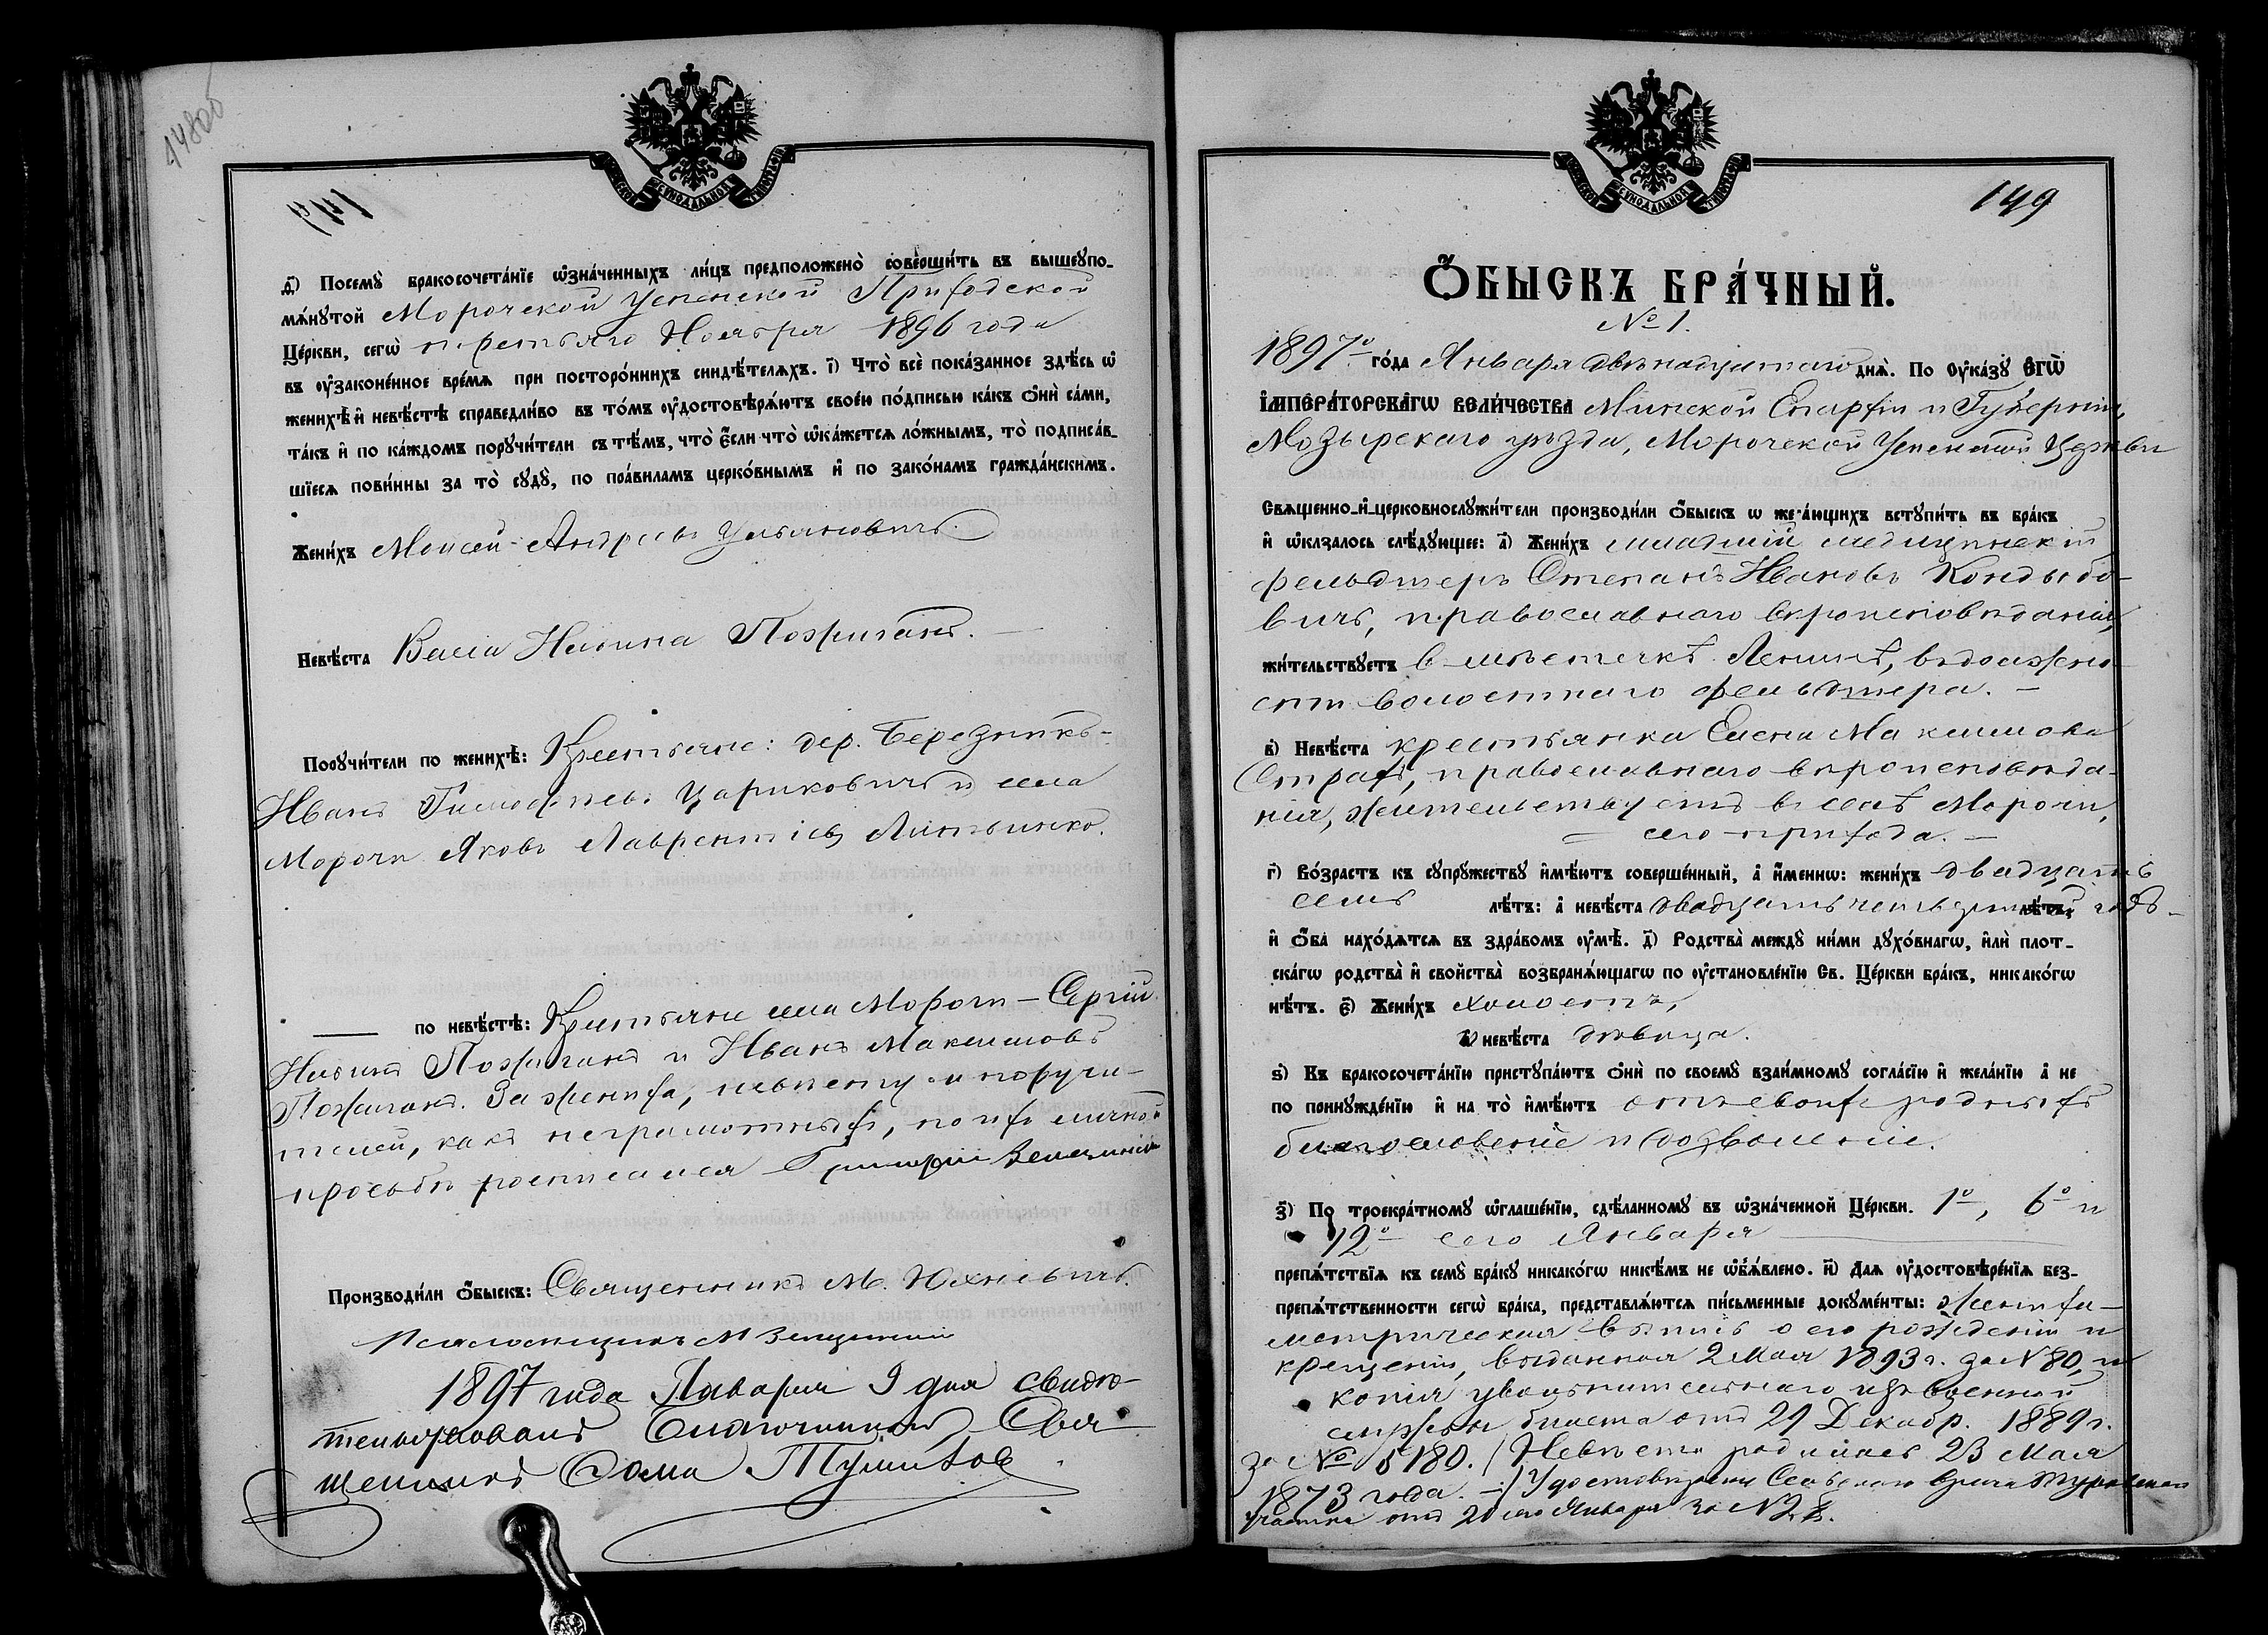 148об
МОСКОВСКОЙ СѴНОДАЛЬНОЙ ТИПОГРАФІИ
д҃) Посемꙋ̀ бракосочета́нїе ѡ҆зна́ченныхъ ли́цъ предположено̀ соверши́ть въ вышеꙋпо-
мѧ́нꙋтой Морочской Успенской Приходской
Це́ркви, сегѡ̀ третьяго Ноября 1896 года
въ ᲂу҆законе́нное вре́мѧ при посторо́ннихъ свидѣ́телѧхъ. і҃) Что̀ всѐ пока́занное здѣ́сь ѡ҆
женихѣ̀ и҆ невѣ́стѣ справедли́во въ то́мъ ᲂу҆достовѣрѧ́ютъ свое́ю по́дписью ка́къ ѻ҆нѝ са́ми,
та́къ и҆ по ка́ждомъ порꙋчи́тели съ тѣ́мъ, что̀ є҆́сли что̀ ѡ҆ка́жетсѧ ло́жнымъ, то̀ подписа́в-
шїесѧ пови́нны за то̀ сꙋдꙋ̀, по пра́виламъ церко́внымъ и҆ по зако́намъ гражда́нскимъ.
Жени́хъ Моисей Андреевъ Ульяновичъ.
Невѣ́ста Васса Никитина Пожиганъ.
Порꙋчи́тели по женихѣ̀: Крестьяне: дер. Березникъ-
Иванъ Тимофѣевъ Цариковичъ и села
Морочи Яковъ Лаврентіевъ Литвинко.
по невѣ́стѣ: Крестьяне села Морочи – Сергій
Никит. Пожиганъ и Иванъ Максимовъ
Пожиганъ. За жениха, невѣсту и поручи-
телей, какъ неграмотныхъ, по ихъ личной
просьбѣ росписался Григорій
Производи́ли ѻ҆́быскъ: Священникъ М. Юхневичъ.
Псаломщикъ
1897 года Января 9 дня свидѣ-
тельствовалъ Благочинный Свя-
щенникъ Ѳома Тумиловъ
149
МОСКОВСКОЙ СѴНОДАЛЬНОЙ ТИПОГРАФІИ
Ѻ҆́БЫСКЪ БРА́ЧНЫЙ.
№ 1.
1897го го́да Января двѣнадцатаго днѧ̀. По Оу҆ка́зꙋ Є҆гѡ̀
І҆МПЕРА́ТОРСКАГѠ ВЕЛИ́ЧЕСТВА Минской Епархіи и Губерніи,
Мозырскаго уѣзда, Морочской Успенской Церкви
Свѧще́нно-и҆-церковнослꙋжи́тели производи́ли ѻ҆́быскъ ѡ жела́ющихъ встꙋпи́ть въ бра́къ
и҆ ѡ҆каза́лось слѣ́дꙋющее: а҃) Жени́хъ младшій медицинскій
фельдшеръ Степанъ Ивановъ Кондыбо-
вичъ, православнаго вѣроисповѣданія,
жи́тельствꙋетъ въ мѣстечкѣ Ленинѣ, въ должно-
сти волостнаго фельдшера. –
в҃) Невѣ́ста крестьянка Елена Максимова
Страхъ, православнаго вѣроисповѣда-
нія, жительствуетъ въ селѣ Морочи,
– сего прихода. –
г҃) Во́зрастъ къ сꙋпрꙋ́жествꙋ и҆мѣ́ютъ соверше́нный, а҆ и҆́меннѡ: жени́хъ двадцать
семь лѣ́тъ: а҆ невѣ́ста двадцать четыре лѣ́тъ, годъ –
и҆ ѻ҆́ба нахо́дѧтсѧ въ здра́вомъ ᲂу҆мѣ̀. д҃) Родства̀ междꙋ̀ ни́ми дꙋхо́внагѡ, и҆лѝ плот-
ска́гѡ родства̀ и҆ сво́йства возбранѧ́ющагѡ по ᲂу҆становле́нїю Св. Це́ркви бра́къ, никако́гѡ
нѣ́тъ. є҃) Жени́хъ холостъ,
а҆ невѣ́ста дѣвица.
ѕ҃) Къ бракосочета́нїю пристꙋпа́ютъ ѻ҆нѝ по своемꙋ̀ взаи́мномꙋ согла́сїю и҆ жела́нїю а҆ не
по принꙋжде́нїю и҆ на то̀ и҆мѣ́ютъ отъ своихъ родныхъ
благословеніе и дозволеніе.
з҃) По троекра́тномꙋ ѡ҆глаше́нїю, сдѣ́ланномꙋ въ ѡ҆зна́ченной Це́ркви. 1го, 6го и
12го сего Января
препѧ́тствїѧ къ семꙋ̀ бра́кꙋ никако́гѡ никѣ́мъ не ѡ҆б̾ѧ́влено. и҃) Длѧ ᲂу҆достовѣре́нїѧ без-
препѧ́тственности сегѡ̀ бра́ка, представлѧ́ютсѧ пи́сьменные докꙋме́нты: жениха –
метрическая выпись о его рожденіи и
крещеніи, выданная 2 Мая 1893 г. за № 80, и
копія увольнительнаго изъ военной
службы билета отъ 29 Декабр. 1889 г.
за № 5180. Невѣста родилась 23 Мая
1873 года. –/ Удостовѣреніе Сельскаго врача Туровскаго
участка отъ 20 сего Января за №